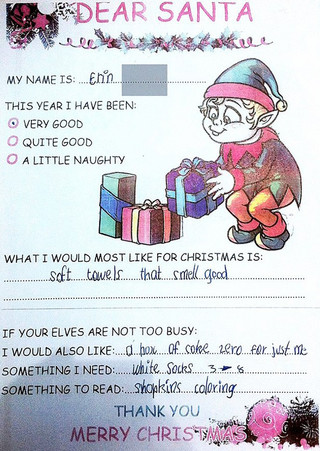 DEAR SANTA
MY NAME IS: Erin
THIS YEAR I HAVE BEEN:
VERY GOOD
QUITE GOOD
A LITTLE NAUGHTY
WHAT I WOULD MOST LIKE FOR CHRISTMAS IS:
soft towels that smell good
IF YOUR ELVES ARE NOT TOO BUSY:
I WOULD ALSO LIKE: a box of coke zero for just me
SOMETHING I NEED: white socks 3-8
SOMETHING TO READ: shopkins coloring
THANK YOU
MERRY CHRISTMAS